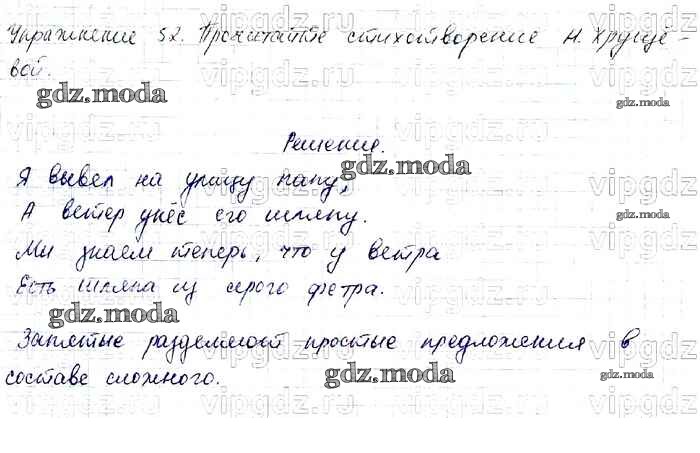 Упражнение 52. Прочитайте стихотворение Н. Хрущё-
вой.
gdz.moda
gdz.moda
Решение.
gdz.moda
Я вывел на улицу папу,
А ветер унёс его шляпу.
gdz.moda
Мы знаем теперь, что у ветра
Есть шляпа из серого фетра.
gdz.moda
gdz.moda
Запятые разделяют простые предложения в
составе сложного.
gdz.moda
gdz.moda
vipgdz.ru